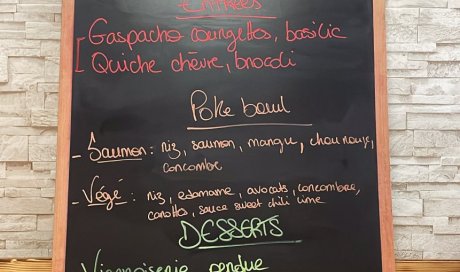 Entrées
- Gaspacho courgettes, basilic
- Quiche chèvre, brocoli
Poke bowl
- Saumon : riz, saumon, mangue, chou rouge,
concombre
- Végé : riz, edamame, avocats, concombre,
carottes, sauce sweet chili lime
DESSERTS
Viennoiserie perdue